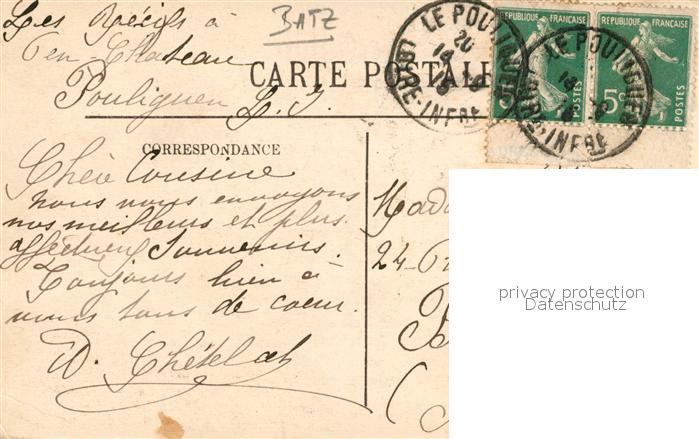 Les Récifs à
Pen Château
Pouliguen L. I.
BATZ
CARTE POSTALE
LE POULIGUEN
20
18
LOIRE-INFRE
REPUBLIQUE FRANÇAISE
POSTES
LE POULIGUEN
18
LOIRE-INFRE
REPUBLIQUE FRANÇAISE
5c
POSTES
CORRESPONDANCE
Chère Cousine
nous vous envoyons
nos meilleurs et plus
affectueux Souvenirs.
Toujours bien à
vous tous de coeur.
D. Chételat
Mada
24
privacy protection
Datenschutz